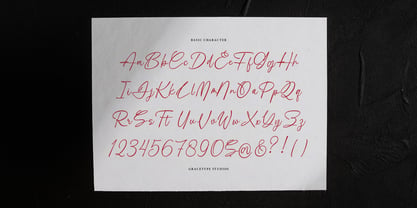 BASIC CHARACTER
AaBbCcDdEeFfGgHh
IiJjKkLlMmNnOoPpQq
RrSsTt UuVvWwXxYyZz
1234567890$@&?!()
GRACETYPE STUDIOS